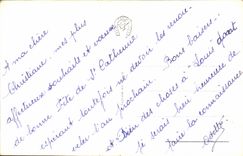 A ma chère
Christiane, mes plus
affectueux souhaits et voeux
de bonne fête de Ste Catherine
espérant toutefois ne devoir les renou-
veler l'an prochain. Bons baisers
et bien des choses à Louis dont
je serais bien heureuse de
faire la connaissance